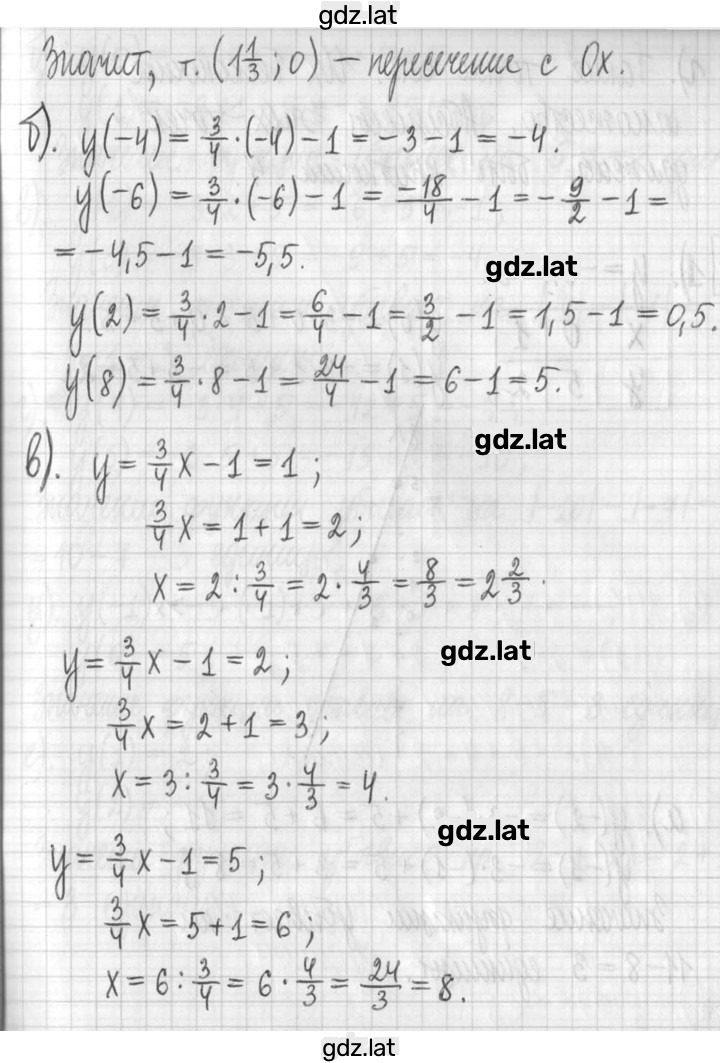 gdz.lat
Значит, т. (1 1/3 ; 0) – пересечение с Ох.
б). y(-4) = 3/4 · (-4) - 1 = -3 - 1 = -4.
y(-6) = 3/4 · (-6) - 1 = -18/4 - 1 = -9/2 - 1 =
= -4,5 - 1 = -5,5.
gdz.lat
y(2) = 3/4 · 2 - 1 = 6/4 - 1 = 3/2 - 1 = 1,5 - 1 = 0,5.
y(8) = 3/4 · 8 - 1 = 24/4 - 1 = 6 - 1 = 5.
gdz.lat
в). y = 3/4 x - 1 = 1 ;
3/4 x = 1 + 1 = 2 ;
x = 2 : 3/4 = 2 · 4/3 = 8/3 = 2 2/3 .
gdz.lat
y = 3/4 x - 1 = 2 ;
3/4 x = 2 + 1 = 3 ;
x = 3 : 3/4 = 3 · 4/3 = 4.
gdz.lat
y = 3/4 x - 1 = 5 ;
3/4 x = 5 + 1 = 6 ;
x = 6 : 3/4 = 6 · 4/3 = 24/3 = 8.
gdz.lat